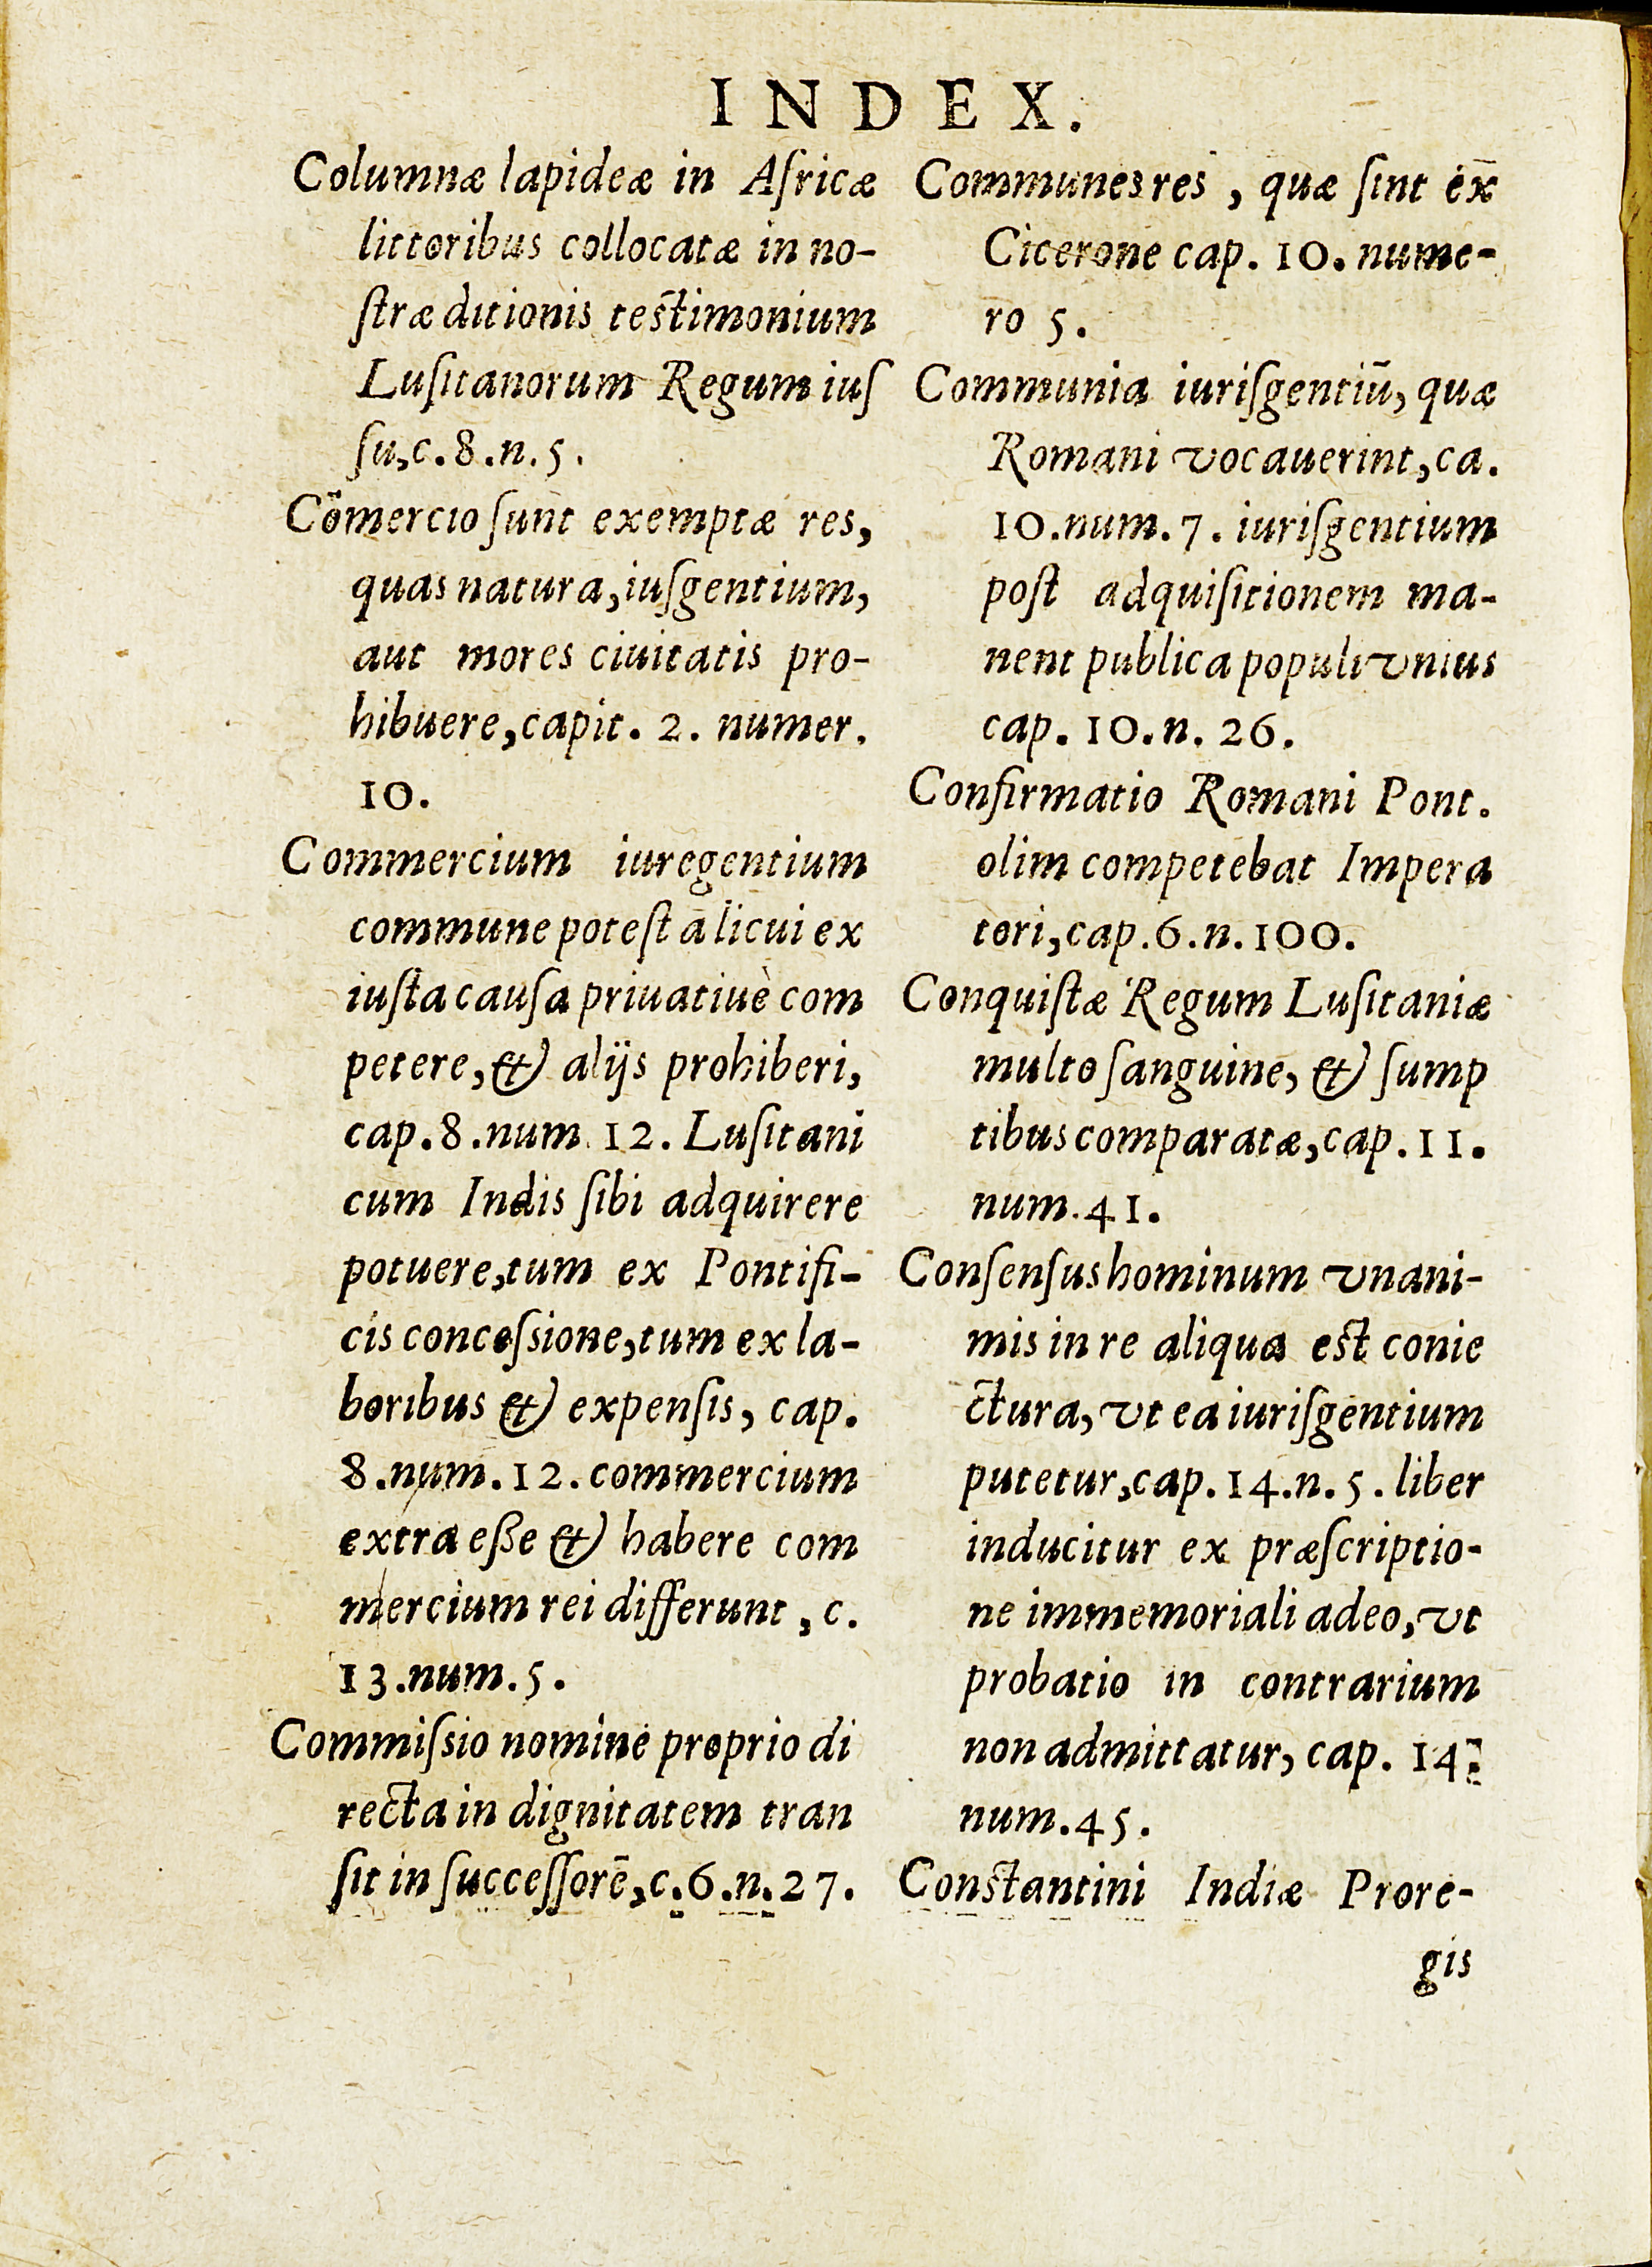 INDEX.
Columnæ lapideæ in Aſricæ
littoribus collocatæ in no-
ſtræ ditionis teſtimonium
Luſitanorum Regum iuſ
ſu, c. 8. n. 5.
Cõmercio ſunt exemptæ res,
quas natura, iuſgentium,
aut mores ciuitatis pro-
hibuere, capit. 2. numer.
10.
Commercium iuregentium
commune poteſt alicui ex
iuſta cauſa priuatiuè com
petere, & alijs prohiberi,
cap. 8. num. 12. Luſitani
cum Indis ſibi adquirere
potuere, tum ex Pontifi-
cis conceſsione, tum ex la-
boribus & expenſis, cap.
8. num. 12. commercium
extra eſſe & habere com
mercium rei differunt, c.
13. num. 5.
Commiſsio nomine proprio di
recta in dignitatem tran
ſit in ſucceſſorē, c. 6. n. 27.
Communes res, quæ ſint ex
Cicerone cap. 10. nume-
ro 5.
Communia iuriſgentiū, quæ
Romani vocauerint, ca.
10. num. 7. iuriſgentium
poſt adquiſitionem ma-
nent publica populi vnius
cap. 10. n. 26.
Confirmatio Romani Pont.
olim competebat Impera
tori, cap. 6. n. 100.
Conquiſtæ Regum Luſitaniæ
multo ſanguine, & ſump
tibus comparatæ, cap. 11.
num. 41.
Conſenſus hominum vnani-
mis in re aliqua eſt conie
ctura, vt ea iuriſgentium
putetur, cap. 14. n. 5. liber
inducitur ex præſcriptio-
ne immemoriali adeo, vt
probatio in contrarium
non admittatur, cap. 14.
num. 45.
Conſtantini Indiæ Prore-
gis